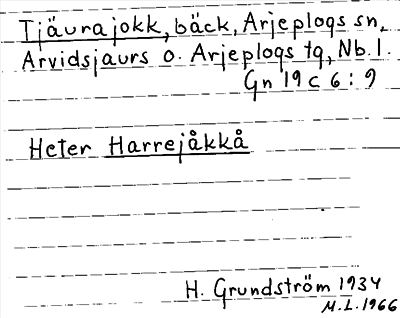 Tjäurajokk, bäck, Arjeplogs sn,
Arvidsjaurs o. Arjeplogs tg, Nb. l.
Gn 19 c 6 : 9
Heter Harrejåkkå
H. Grundström 1934
M.L. 1966